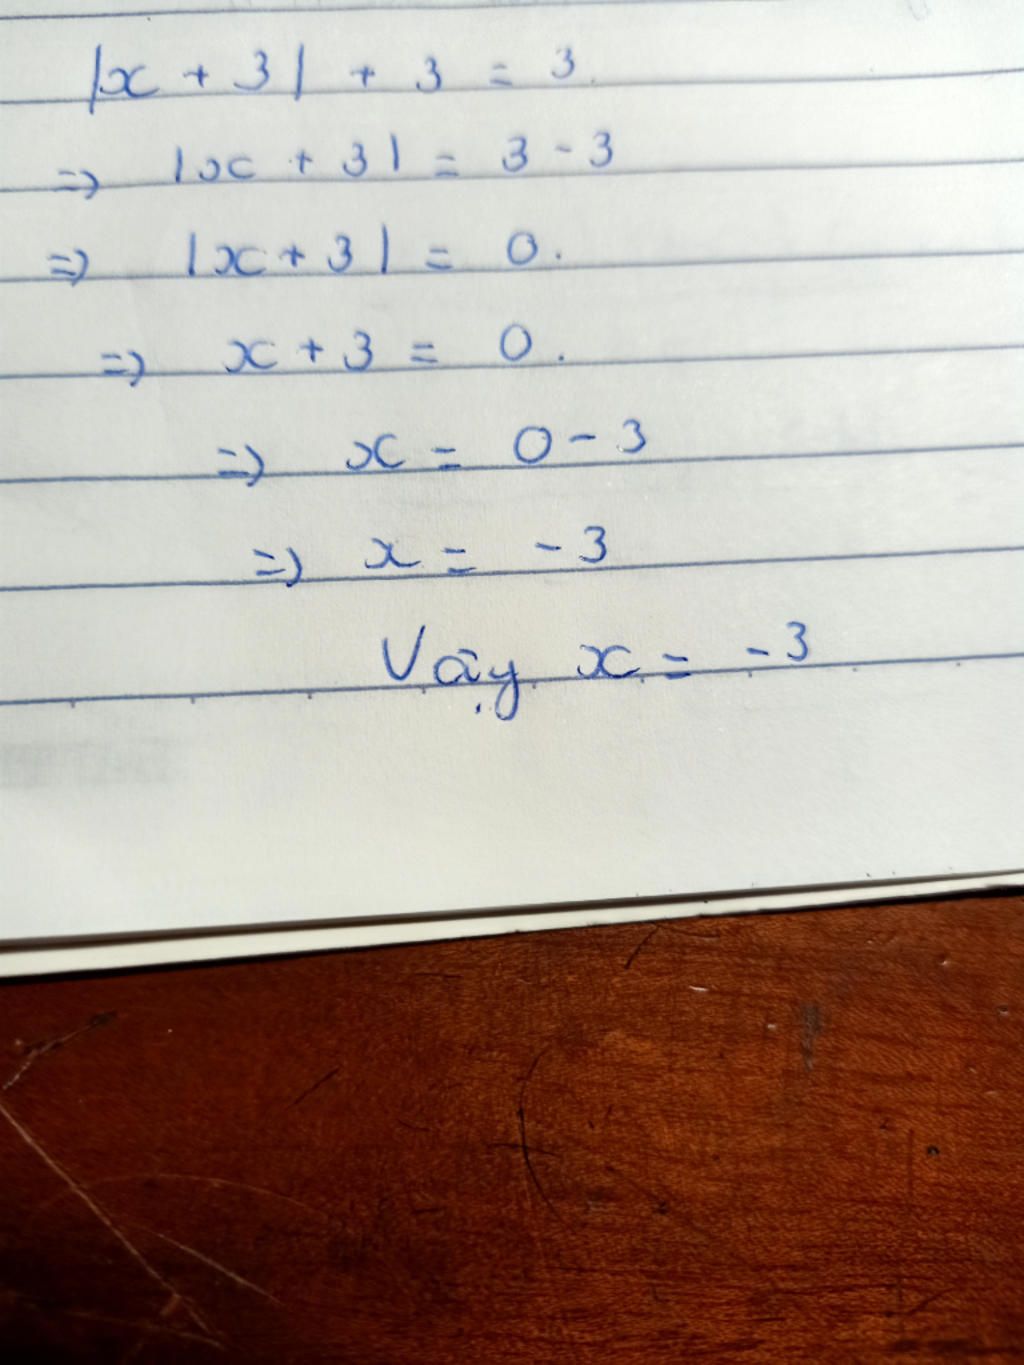 |x + 3| + 3 = 3.
=> |x + 3| = 3 - 3
=> |x + 3| = 0.
=> x + 3 = 0.
=> x = 0 - 3
=> x = - 3
Vậy x = - 3